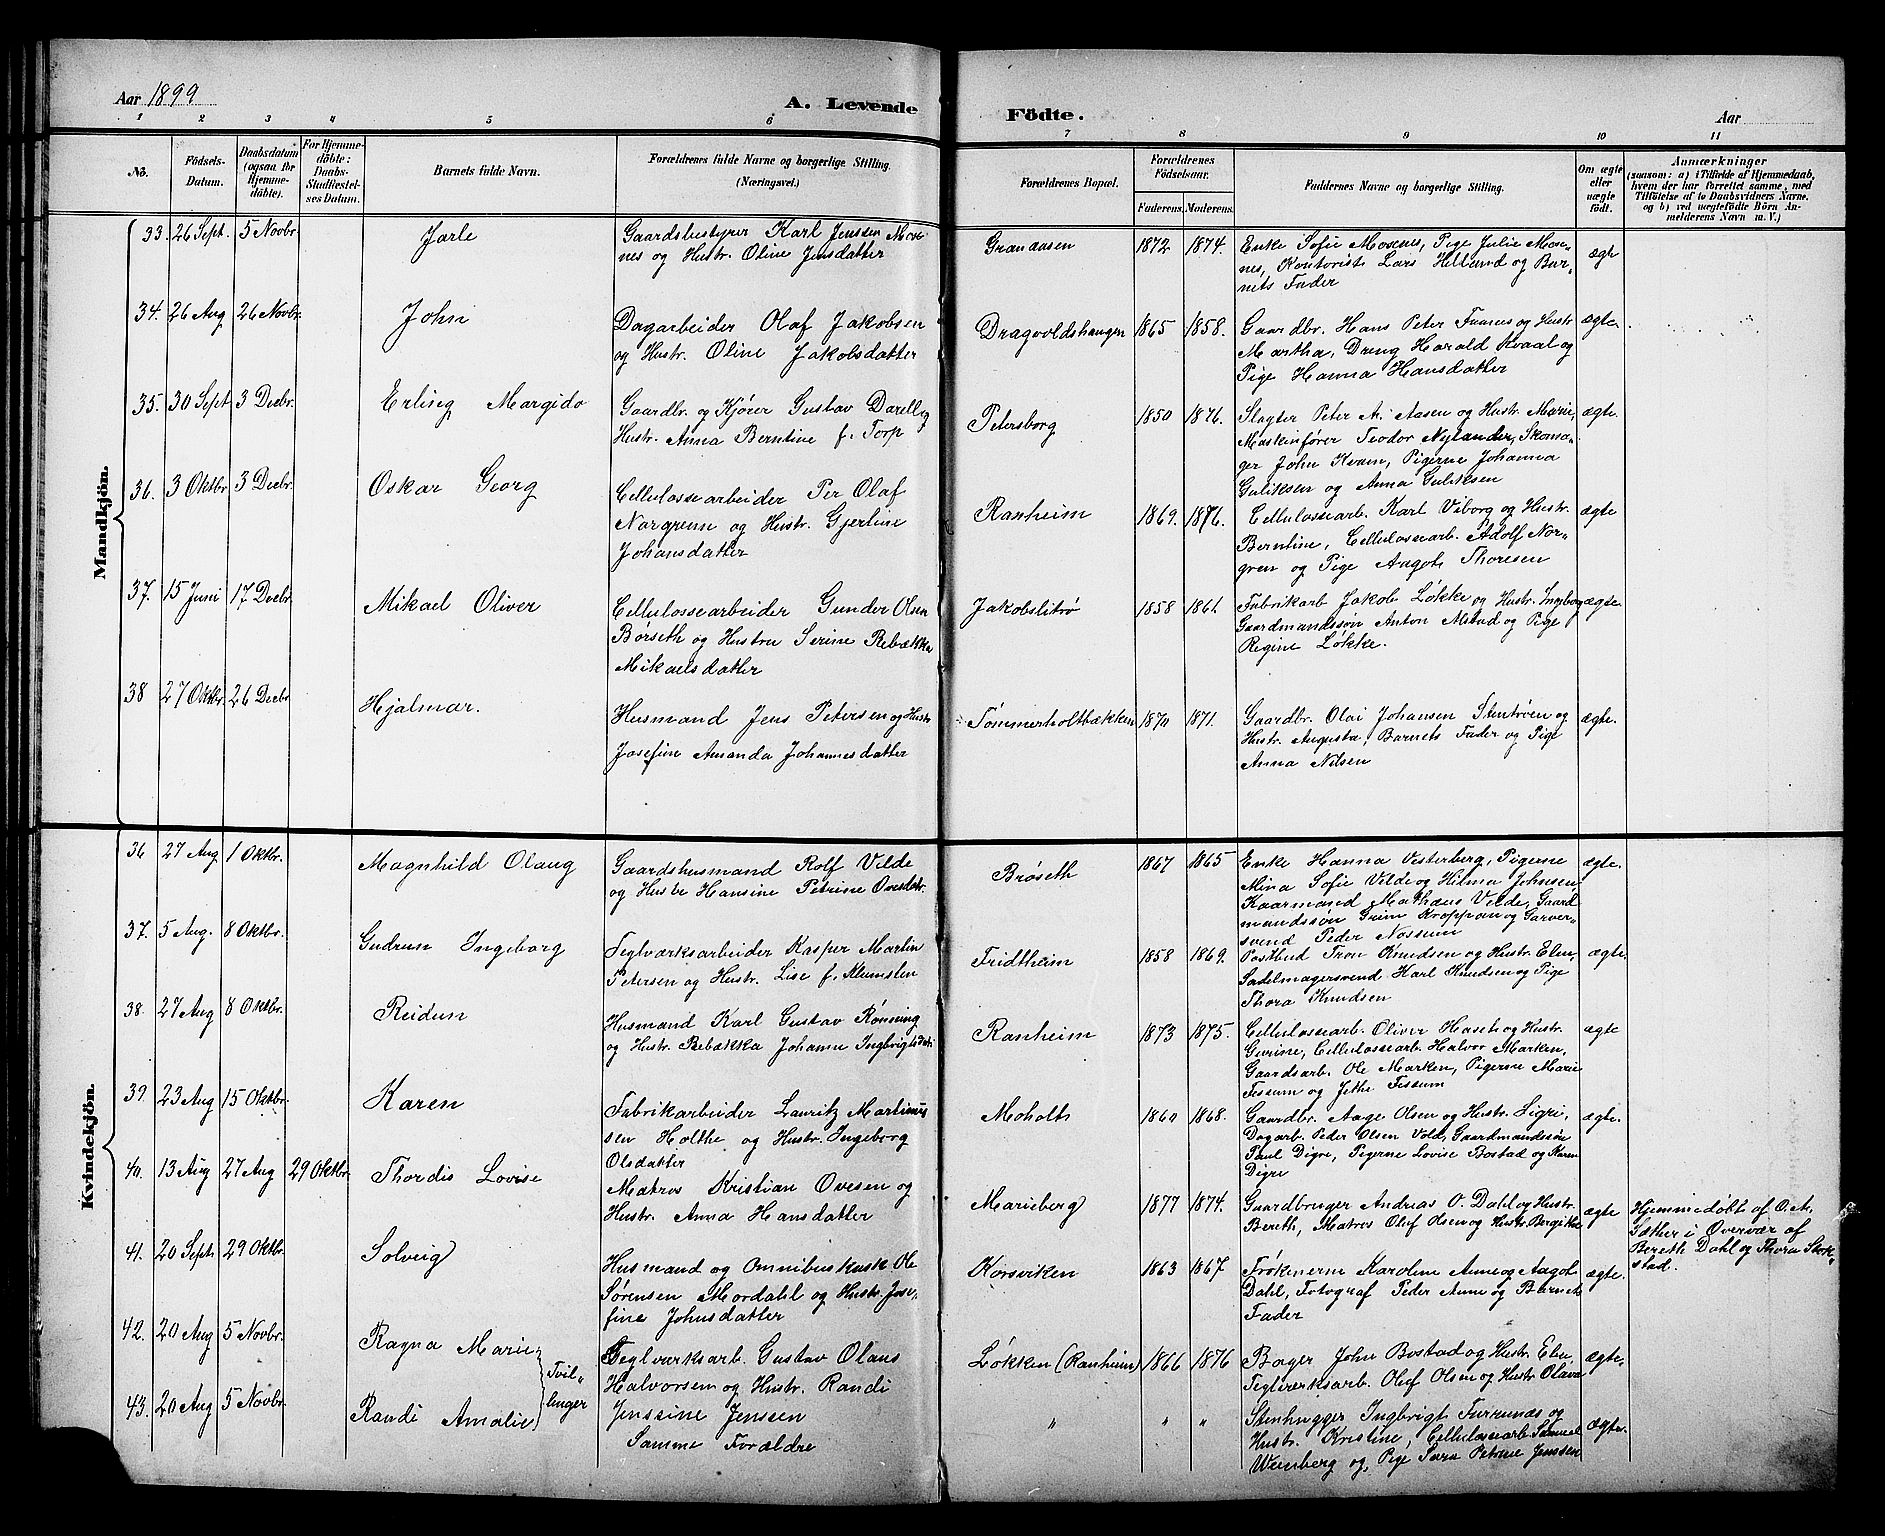 Aar 1899
A. Levende
Födte.
Aar
1 2 3 4 5 6 7 8 9 10 11
No.
Födsels-
Datum.
Daabsdatum
(ogsaa for
Hjemme-
døbte).
For Hjemme-
døbte:
Daabs-
Stadfæstel-
ses Datum.
Barnets fulde Navn.
Forældrenes fulde Navne og borgerlige Stilling.
(Næringsvei.)
Forældrenes Bopæl.
Forældrenes
Födselsaar.
Faderens. Moderens.
Faddernes Navne og borgerlige Stilling.
Om ægte
eller
uægte
födt.
Anmærkninger
(saasom: a) i Tilfælde af Hjemmedaab,
hvem der har forrettet samme, med
Tilföielse af to Daabsvidners Navne.
og b) ved uægtefödte Börn An-
melderens Navn m. V.)
Mandkjön.
33. 26 Sept. 5 Novbr. Jarle
Gaardsbestyrer Karl Jenssen Mose-
nes og Hustr. Oline Jensdatter
Granaasen 1872 1874.
Enke Sofie Mosenes, Pige Julie Mose-
nes, Kontorist Lars Hillund og Bar-
nets Fader
ægte
34. 26 Aug 26 Novbr. John
Dagarbeider Olaf Jakobsen
og Hustr. Oline Jakobsdatter
Dragvoldshaugen 1865 1858.
Gaardbr. Hans Peter Fuanes og Hustr
Martha, Dreng Harald Kvaal og
Pige Hanna Hansdatter
ægte.
35. 30 Sept. 3 Decbr. Erling Margido
Gaardbr. og Kjører Gustav Darell og
Hustr. Anna Berntine f. Torp
Petersborg 1850 1876.
Slagter Peter A. Aasen og Hustr. Marie,
Maskinfører Teodor Nylander, Skoma-
ger John Kvam, Pigerne Johanna
Guliksen og Anna Guliksen
ægte.
36. 3 Oktbr 3 Decbr. Oskar Georg
Cellulossearbeider Per Olaf
Norgrenn og Hustr. Gjerline
Johansdatter
Ranheim 1869. 1876.
Cellulossearb. Karl Viborg og Hustr.
Berntine, Cellulossearb. Adolf Nor-
gren og Pige Aagot Thoresen
ægte
37. 15 Juni 17 Decbr. Mikael Oliver
Cellulossearbeider Gunder Olsen
Børseth og Hustru Serine Rebækka
Mikaelsdatter
Jakobslitrø 1858 1861.
Fabrikarb Jakob Løkke og Hustr. Ingeborg
Gaardmandssøn Anton Mstad og Pige
Regine Løkke.
ægte.
38 27 Oktbr. 26 Decbr Hjalmar.
Husmand Jens Petersen og Hustr
Josefine Amanda Johannesdatter
Tømmerholtbækken 1870 1871.
Gaardbr. Olai Johansen Stentrøen og
Hustr. Augusta, Barnets Fader og Pige
Anna Nilsen
ægte.
Kvindekjön.
36 27 Aug 1 Oktbr. Magnhild Olaug
Gaardshusmand Rolf Velde
og Hustr Hansine Petrine Ovesdatr.
Brøseth 1867 1865
Enke Hanna Vesterberg, Pigerne
Mina Sofie Velde og Hilma Johnsen,
Kaarmand Mathæus Velde, Gaard-
mandssøn Grim Kroppan og Garver-
svend Peder Nossum
ægte.
37. 5 Aug. 8 Oktbr. Gudrun Ingeborg
Teglværksarbeider Kasper Martin
Petersen og Hustr. Lise f. Klemslen
Fridtheim 1858 1869.
Postbud Tron Knudsen og Hustr. Elen,
Sadelmagersvend Karl Knudsen og Pige
Thora Knudsen
ægte.
38. 27 Aug 8 Oktbr Reidun
Husmand Karl Gustav Rønning
og Hustr. Rebækka Johanne Ingbrigtsdatr
Ranheim 1873 1875.
Cellulossearb. Oliver Haset og Hustr.
Gurine, Cellulossearb. Halvor Marken,
Gaardsarb. Ole Marken, Pigerne Marie
Tessum og Jethe Tessum
ægte
39. 23 Aug 15 Oktbr. Karen
Fabrikarbeider Lauritz Martinus-
sen Holthe og Hustr. Ingeborg
Olsdatter
Moholt 1860 1868.
Gaardbr. Aage Olsen og Hustr. Sigri,
Dagarb. Peder Olsen Vold, Gaardmandssøn
Paul Digre, Pigerne Lovise Bostad og Karen
Digre
ægte.
40. 13 Aug 27 Aug 29 Oktbr. Thordis Lovise
Matros Kristian Ovesen og
Hustr. Anna Hansdatter
Marieberg 1877 1874.
Gaardbruger Andreas O. Dahl og Hustr.
Bereth, Matros Oluf Olsen og Hustr. Bergitte
ægte
Hjemmedøbt af O. A.
Sæther i Overvær af
Bereth Dahl og Thora Stok-
stad.
41. 20 Sept. 29 Oktbr. Solveig
Husmand og Omnibuskusk Ole
Sørensen Mordahl og Hustr. Jose-
fine Johnsdatter
Korsviken 1863 1867.
Frøknerne Karoline Aune og Aagot
Dahl, Fotograf Peder Aune og Barnets
Fader
ægte.
42. 20 Aug 5 Novbr. Ragna Marie
Tvil-
linger
Teglværksarb. Gustav Olaus
Halvorsen og Hustr. Randi
Jenssine Jenssen
Løkken (Ranheim) 1866 1876
Bager John Bostad og Hustr. Elen,
Teglværksarb. Oluf Olsen og Hustr Olava
ægte.
43. 20 Aug 5 Novbr. Randi Amalie
Samme Forældre
" " "
Stenhugger Ingbrigt Furunæs og
Hustr. Kristine, Cellulossearb. Samuel
Wenberg og Pige Sara Petrine Jenssen
ægte.